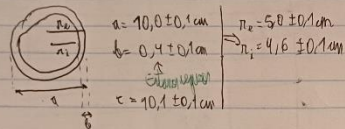 r_e
r_i
a
b
a = 10,0 ± 0,1 cm
b = 0,4 ± 0,1 cm
c = 10,1 ± 0,1 cm
⇒ r_e = 5,0 ± 0,1 cm
r_i = 4,6 ± 0,1 cm